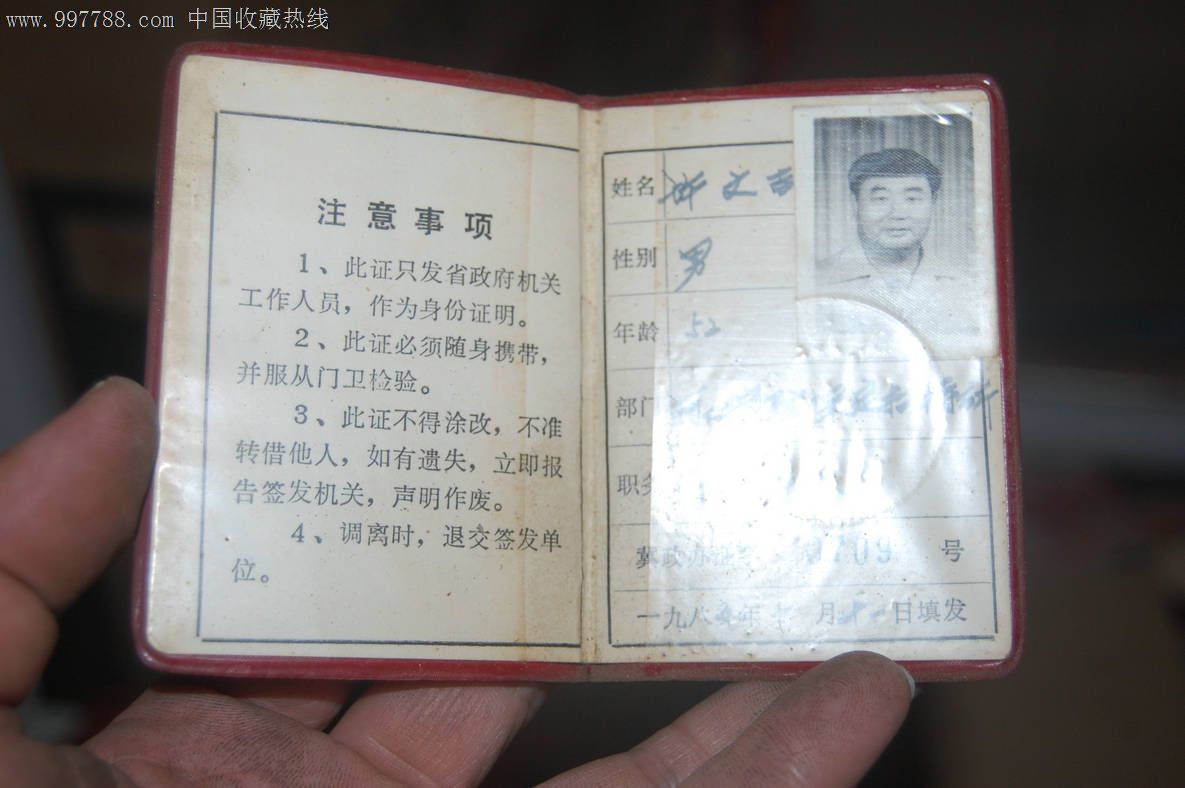 www.997788.com 中国收藏热线
注意事项
1、此证只发省政府机关
工作人员，作为身份证明。
2、此证必须随身携带，
并服从门卫检验。
3、此证不得涂改，不准
转借他人，如有遗失，立即报
告签发机关，声明作废。
4、调离时，退交签发单
位。
姓名
性别 男
年龄 52
部门
职务
冀政办 号
一九八 年十一月十一日填发